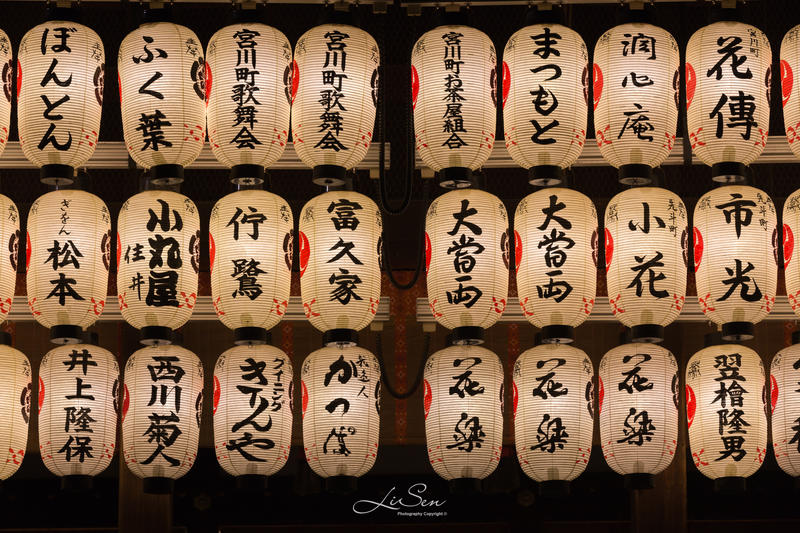 ぼんとん
ふく葉
宮川町歌舞会
宮川町歌舞会
宮川町お茶屋組合
まつもと
潤心庵
宮川町
花傳
ぎをん
松本
小丸屋
住井
佇鷺
富久家
大當両
大當両
先斗町
小花
先斗町
市光
井上隆保
西川菊人
ダイニング
きりんや
かつぱ
花樂
花樂
花樂
翌檜隆男
LiSen
Photography Copyright ©